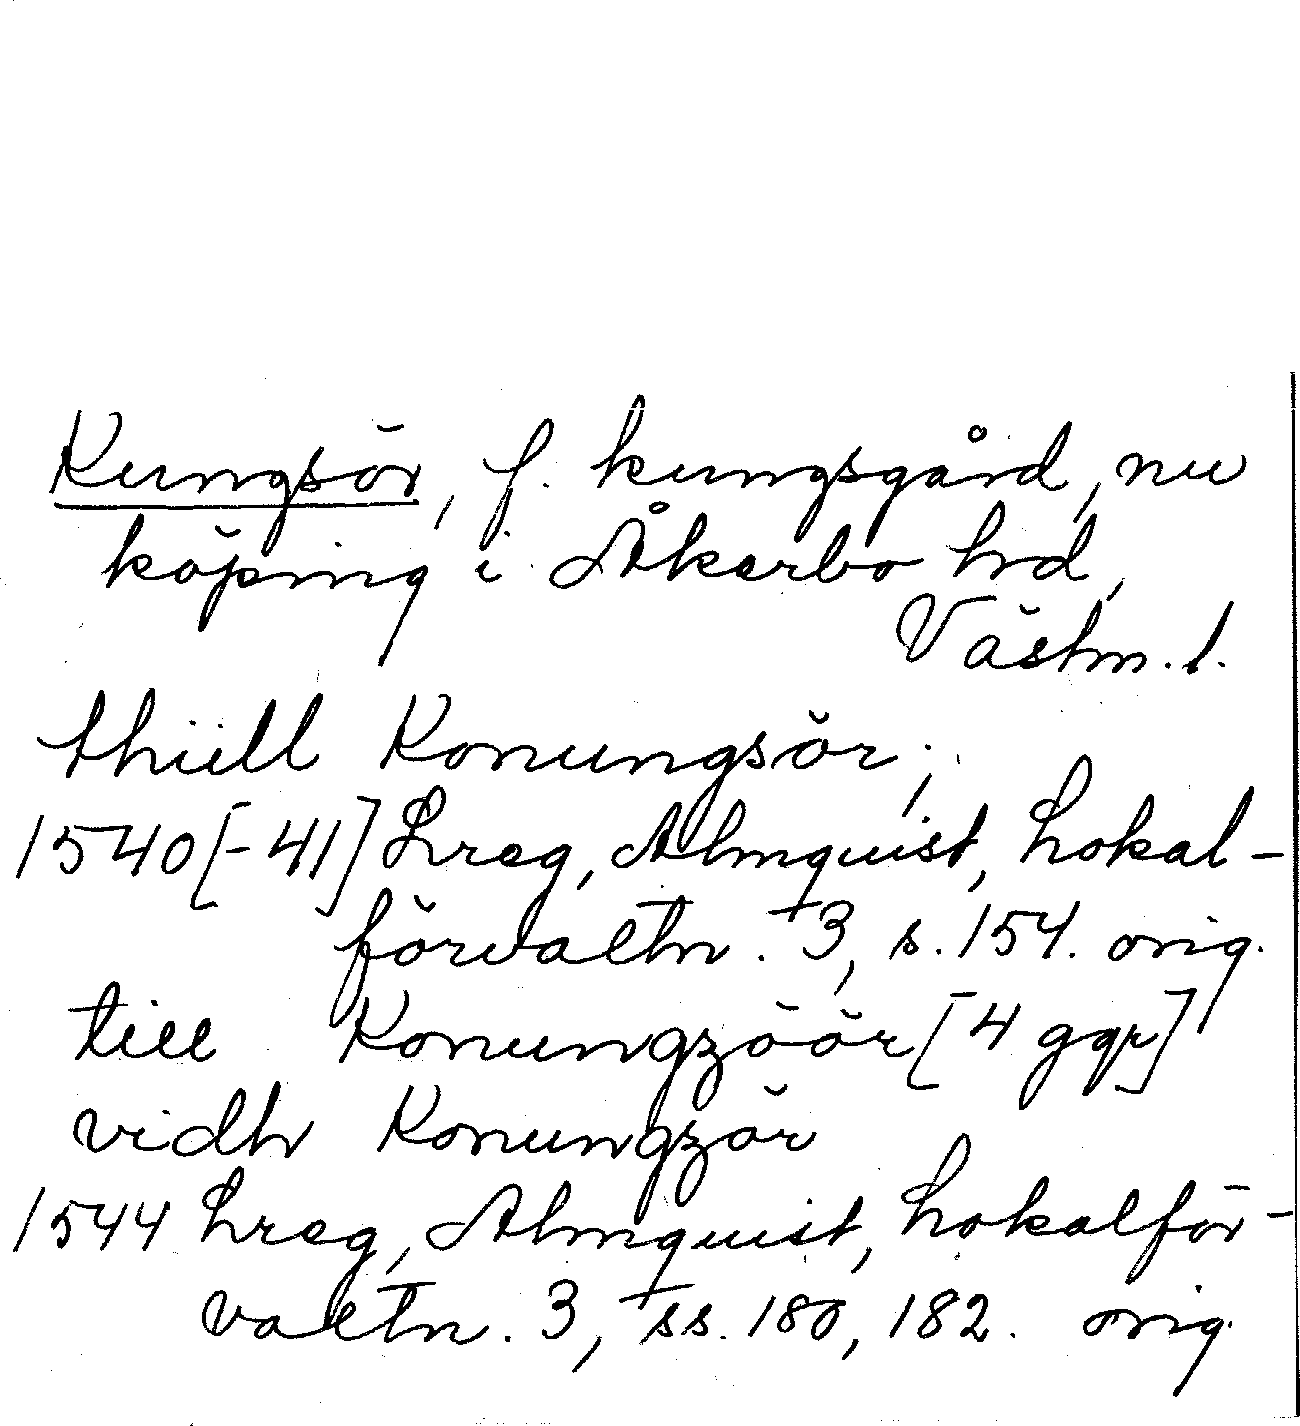 Kungsör, f. kungsgård, nu
köping i Åkerbo hd,
Västm. l.
thiill Konungsör;
1540[-41] Lreg, Almquist, Lokal-
förvaltn. 3, s. 154. orig.
till Konungzöör [4 ggr]
vidh Konungzör
1544 Lreg, Almquist, Lokalför-
valtn. 3, ss. 180, 182. orig.